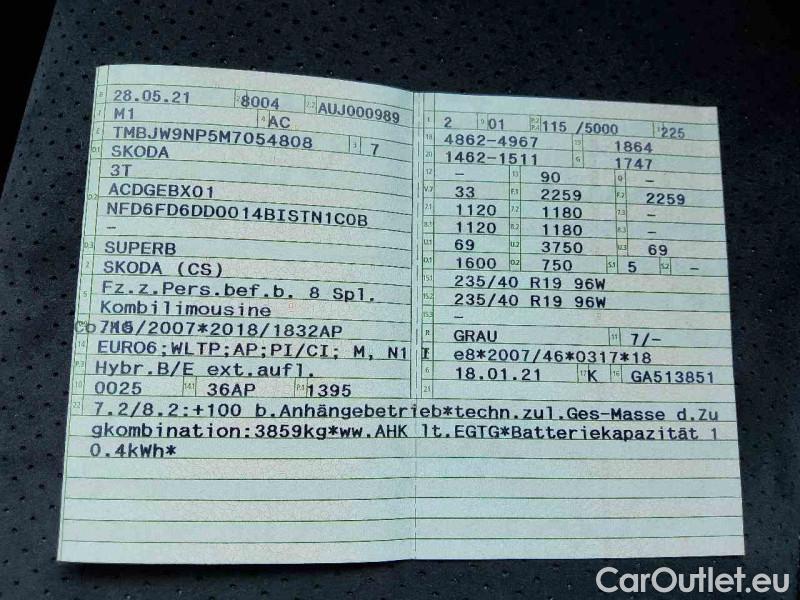 28.05.21 8004 AUJ000989
M1 AC
TMBJW9NP5M7054808 7
SKODA
3T
ACDGEBX01
NFD6FD6DD0014BISTN1C0B
–
SUPERB
SKODA (CS)
Fz.z.Pers.bef.b. 8 Spl.
Kombilimousine
715/2007*2018/1832AP
EURO6;WLTP;AP;PI/CI; M, N1 I
Hybr.B/E ext.aufl.
0025 36AP 1395
2 01 115 /5000 225
4862-4967 1864
1462-1511 1747
– 90 –
33 2259 2259
1120 1180 –
1120 1180 –
69 3750 69
1600 750 5 –
235/40 R19 96W
235/40 R19 96W
–
GRAU 7/–
e8*2007/46*0317*18
18.01.21 K GA513851
7.2/8.2:+100 b.Anhängebetrieb*techn.zul.Ges-Masse d.Zu
gkombination:3859kg*ww.AHK lt.EGTG*Batteriekapazität 1
0.4kWh*
CarOutlet.eu